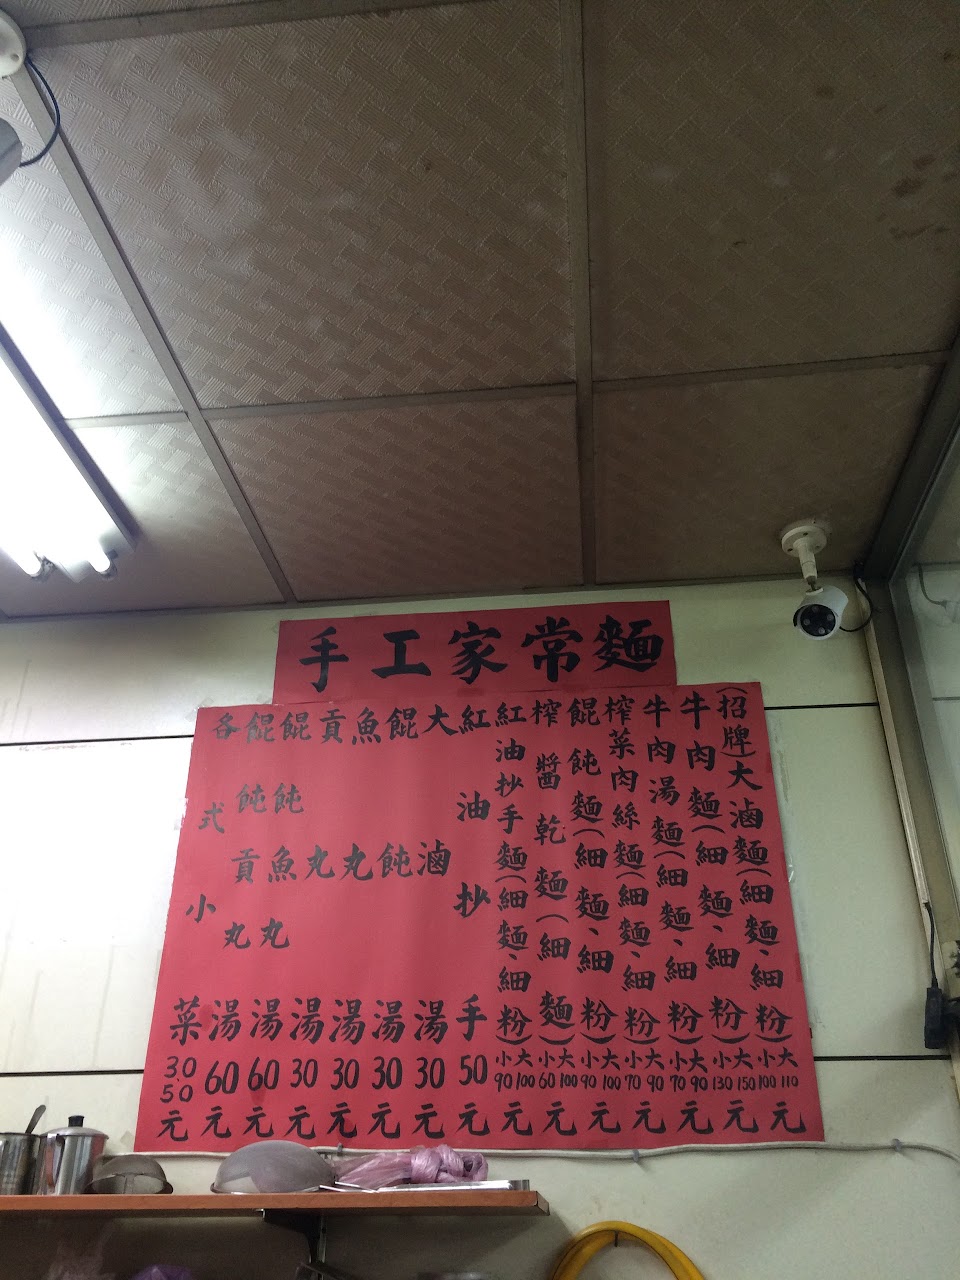 手工家常麵
(招牌)大滷麵(細麵、細粉)小100大110元
牛肉麵(細麵、細粉)小130大150元
牛肉湯麵(細麵、細粉)小70大90元
榨菜肉絲麵(細麵、細粉)小70大90元
餛飩麵(細麵、細粉)小90大100元
榨醬乾麵(細麵)小60大100元
紅油抄手麵(細麵、細粉)小90大100元
紅油抄手50元
大滷湯30元
餛飩湯30元
魚丸湯30元
貢丸湯30元
餛飩魚丸湯60元
餛飩貢丸湯60元
各式小菜30.50元